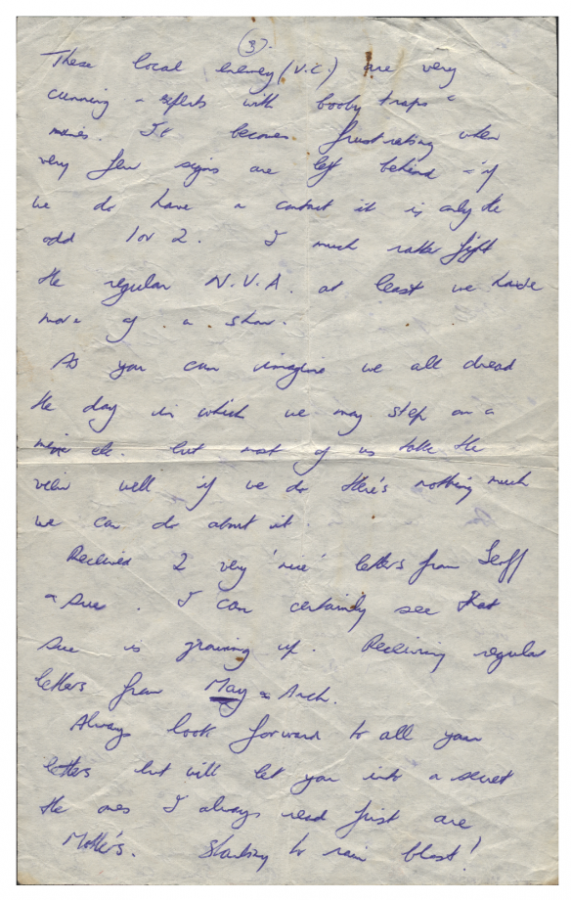 (3).
These local enemy (V.C.) are very
cunning & experts with booby traps &
mines. It becomes frustrating when
very few signs are left behind & if
we do have a contact it is only the
odd 1 or 2. I much rather fight
the regular N.V.A. at least we have
more of a show.
As you can imagine we all dread
the day in which we may step on a
mine etc. but most of us take the
view well if we do there's nothing much
we can do about it.
Received 2 very 'nice' letters from Geoff
& Sue. I can certainly see that
Sue is growing up. Receiving regular
letters from May & Arch.
Always look forward to all your
letters but will let you into a secret
the ones I always read first are
Mother's. Starting to rain blast!